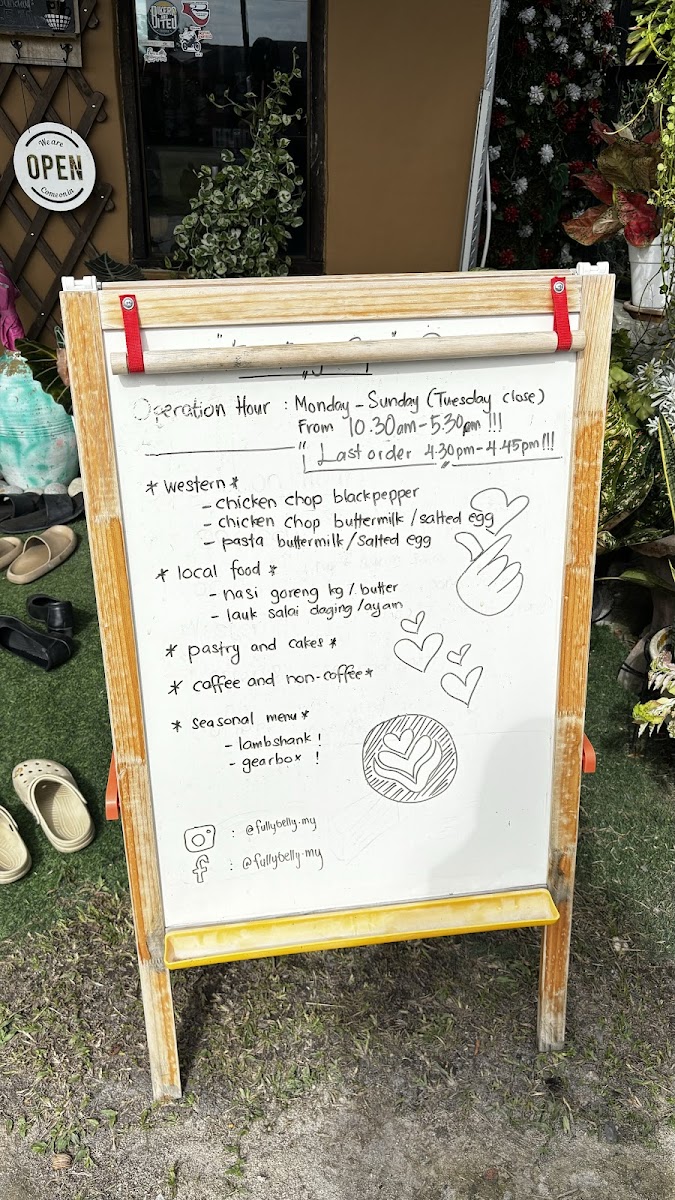 We are
OPEN
Come on in
Operation Hour : Monday - Sunday (Tuesday close)
From 10.30am - 5.30pm !!!
"Last order 4.30pm - 4.45pm!!!
* western *
- chicken chop blackpepper
- chicken chop buttermilk / salted egg
- pasta buttermilk / salted egg
* local food *
- nasi goreng kg / butter
- lauk salai daging / ayam
* pastry and cakes *
* coffee and non-coffee *
* seasonal menu *
- lambshank !
- gearbox !
: @fullybelly.my
f : @fullybelly.my